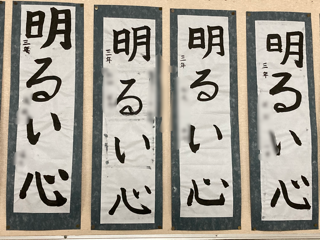 明るい心
三年
明るい心
三年
明るい心
三年
明るい心
三年